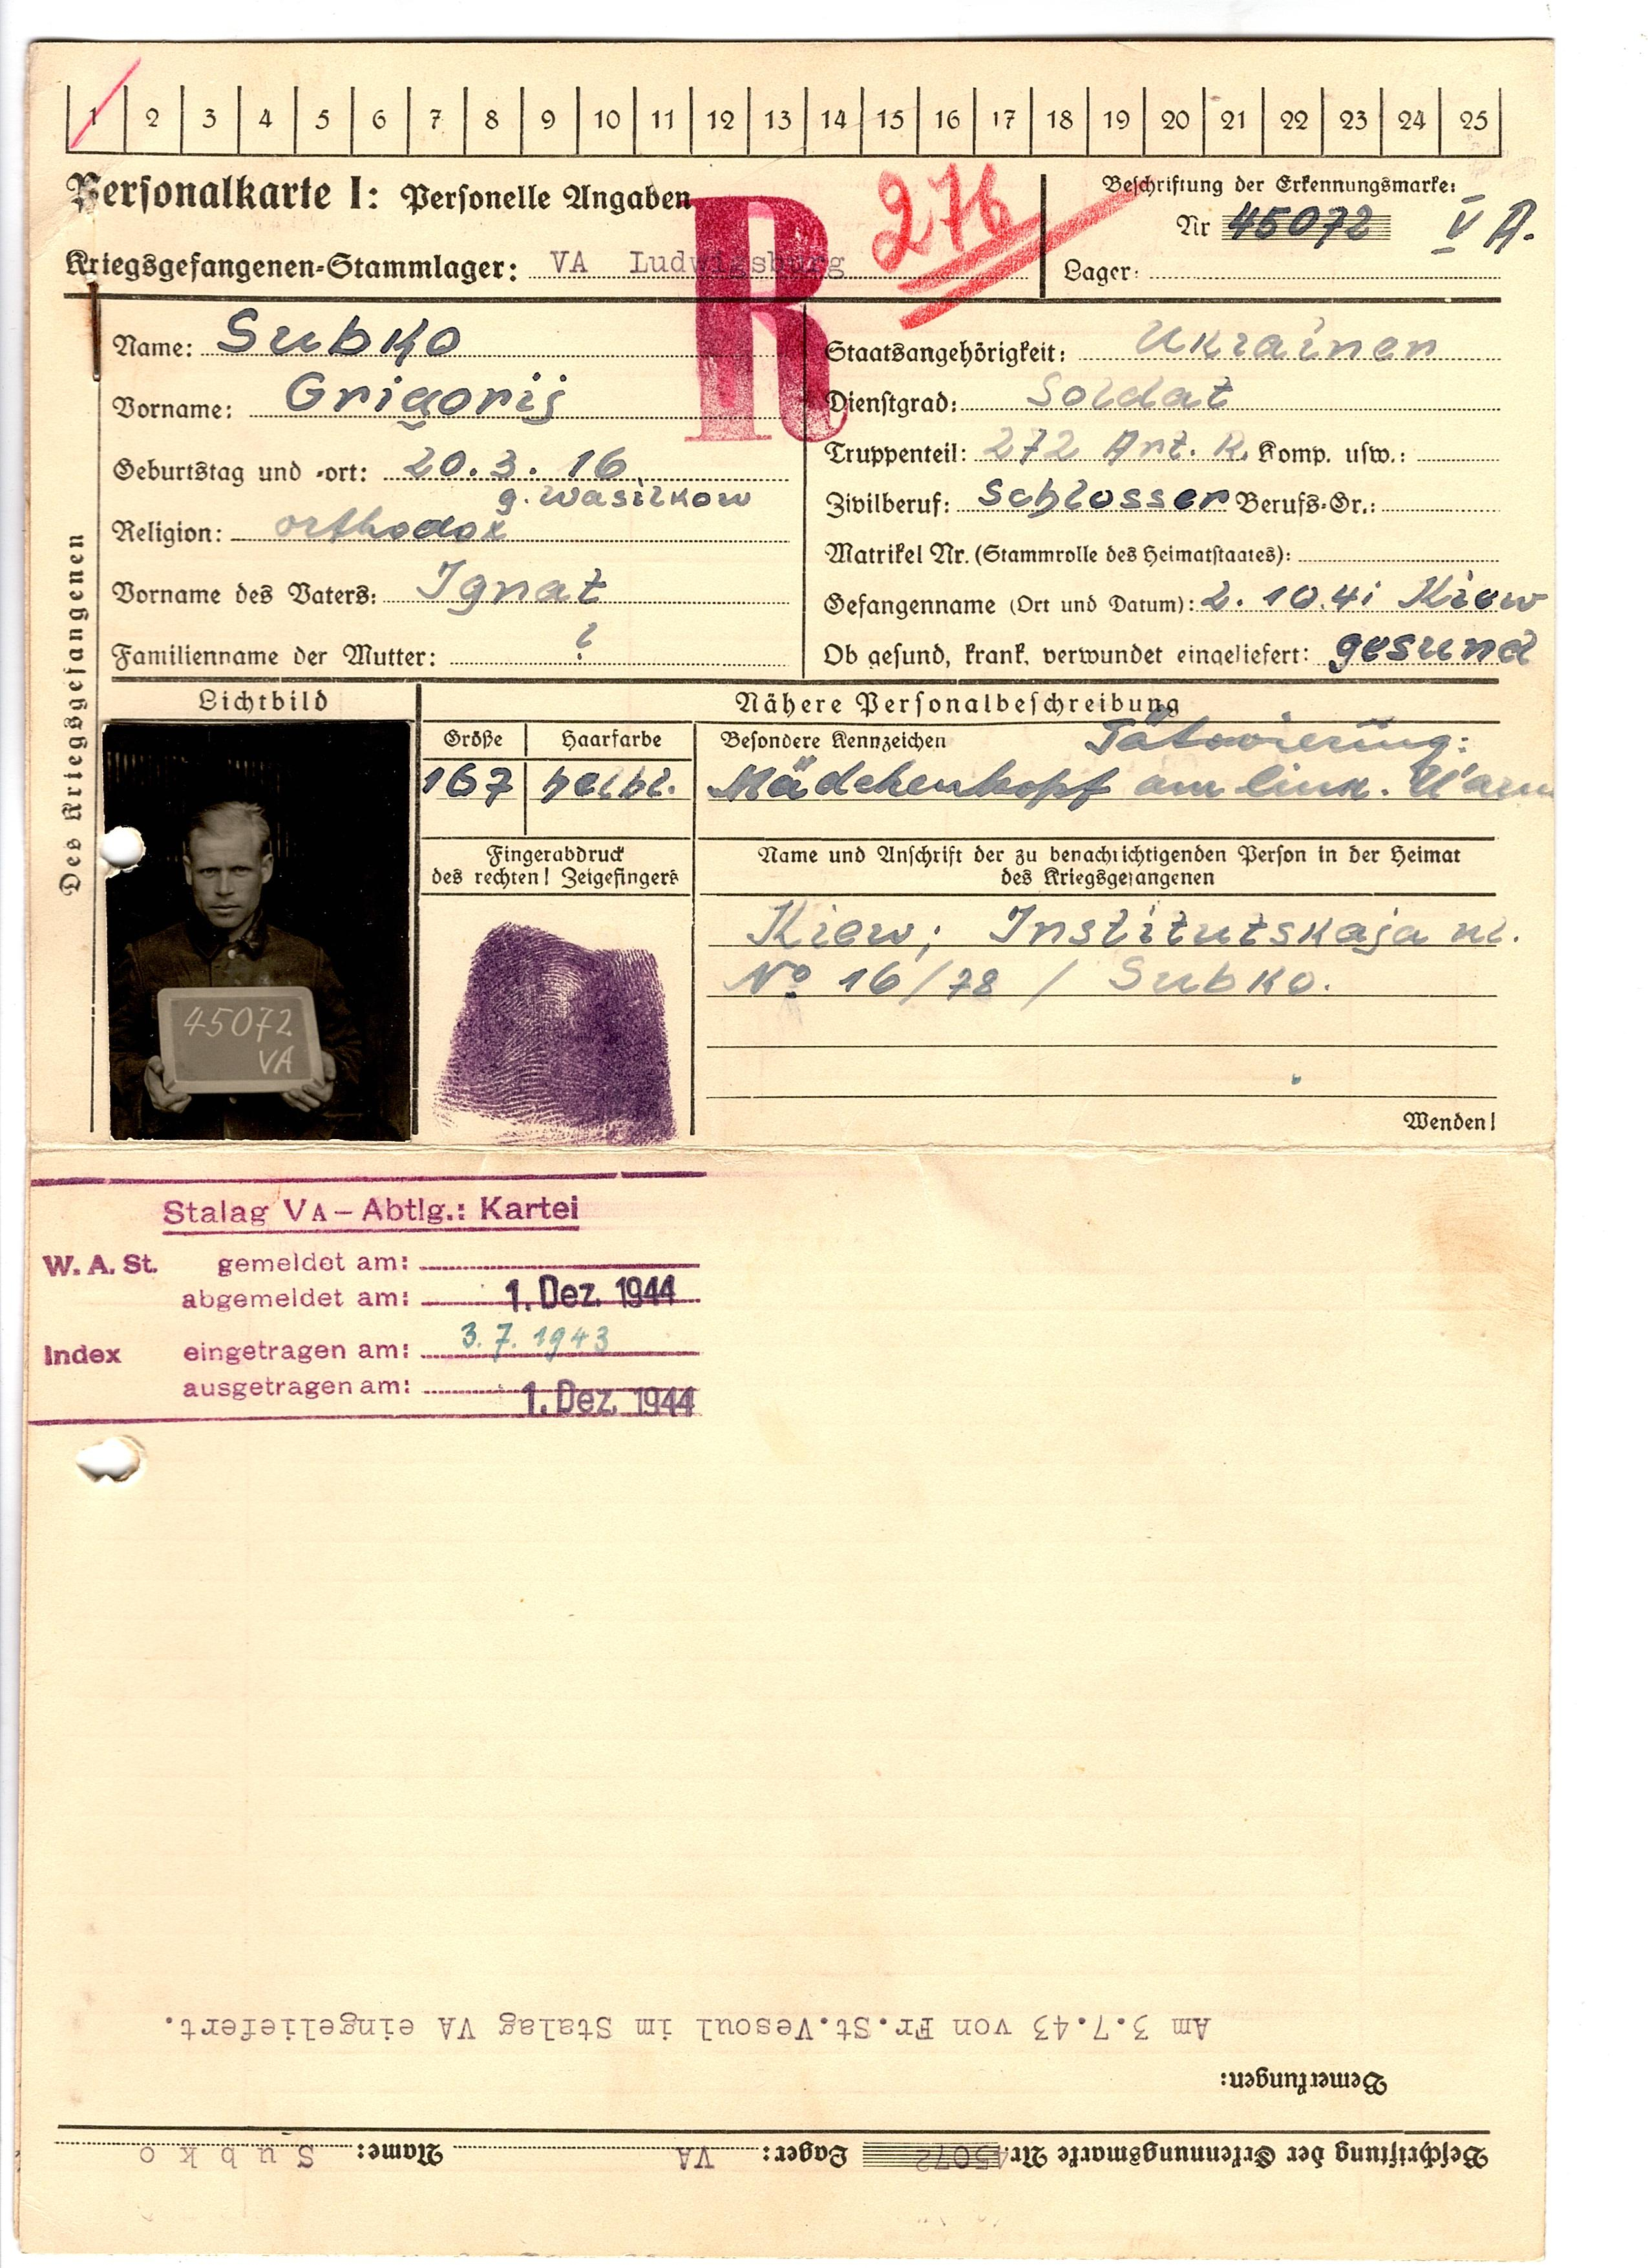 1 2 3 4 5 6 7 8 9 10 11 12 13 14 15 16 17 18 19 20 21 22 23 24 25
Personalkarte I: Personelle Angaben
R
276
Beschriftung der Erkennungsmarke:
Nr 45072 V A.
Kriegsgefangenen-Stammlager: VA Ludwigsburg
Lager:
Des Kriegsgefangenen
Name: Subko
Vorname: Grigorij
Geburtstag und -ort: 20.3.16
g. Wasilkow
Religion: orthodox
Vorname des Vaters: Ignat
Familienname der Mutter: ?
Staatsangehörigkeit: Ukrainen
Dienstgrad: Soldat
Truppenteil: 272 Art. R. Komp. usw.:
Zivilberuf: Schlosser Berufs-Gr.:
Matrikel Nr. (Stammrolle des Heimatstaates):
Gefangenname (Ort und Datum): 2.10.41 Kiew
Ob gesund, krank, verwundet eingeliefert: gesund
Lichtbild
45072
VA
Nähere Personalbeschreibung
Größe Haarfarbe
167 helbl.
Besondere Kennzeichen Tätowierung:
Mädchenkopf am link. U'arm
Fingerabdruck
des rechten! Zeigefingers
Name und Anschrift der zu benachrichtigenden Person in der Heimat
des Kriegsgefangenen
Kiew; Institutskaja ul.
No 16/78 / Subko.
Wenden!
Stalag VA – Abtlg.: Kartei
W. A. St. gemeldet am:
abgemeldet am: 1. Dez. 1944
Index eingetragen am: 3.7.1943
ausgetragen am: 1. Dez. 1944
Beschriftung der Erkennungsmarke Nr. 45072 Lager: VA Name: Subko
Bemerkungen:
Am 3.7.43 von Fr.St.Vesoul im Stalag VA eingeliefert.